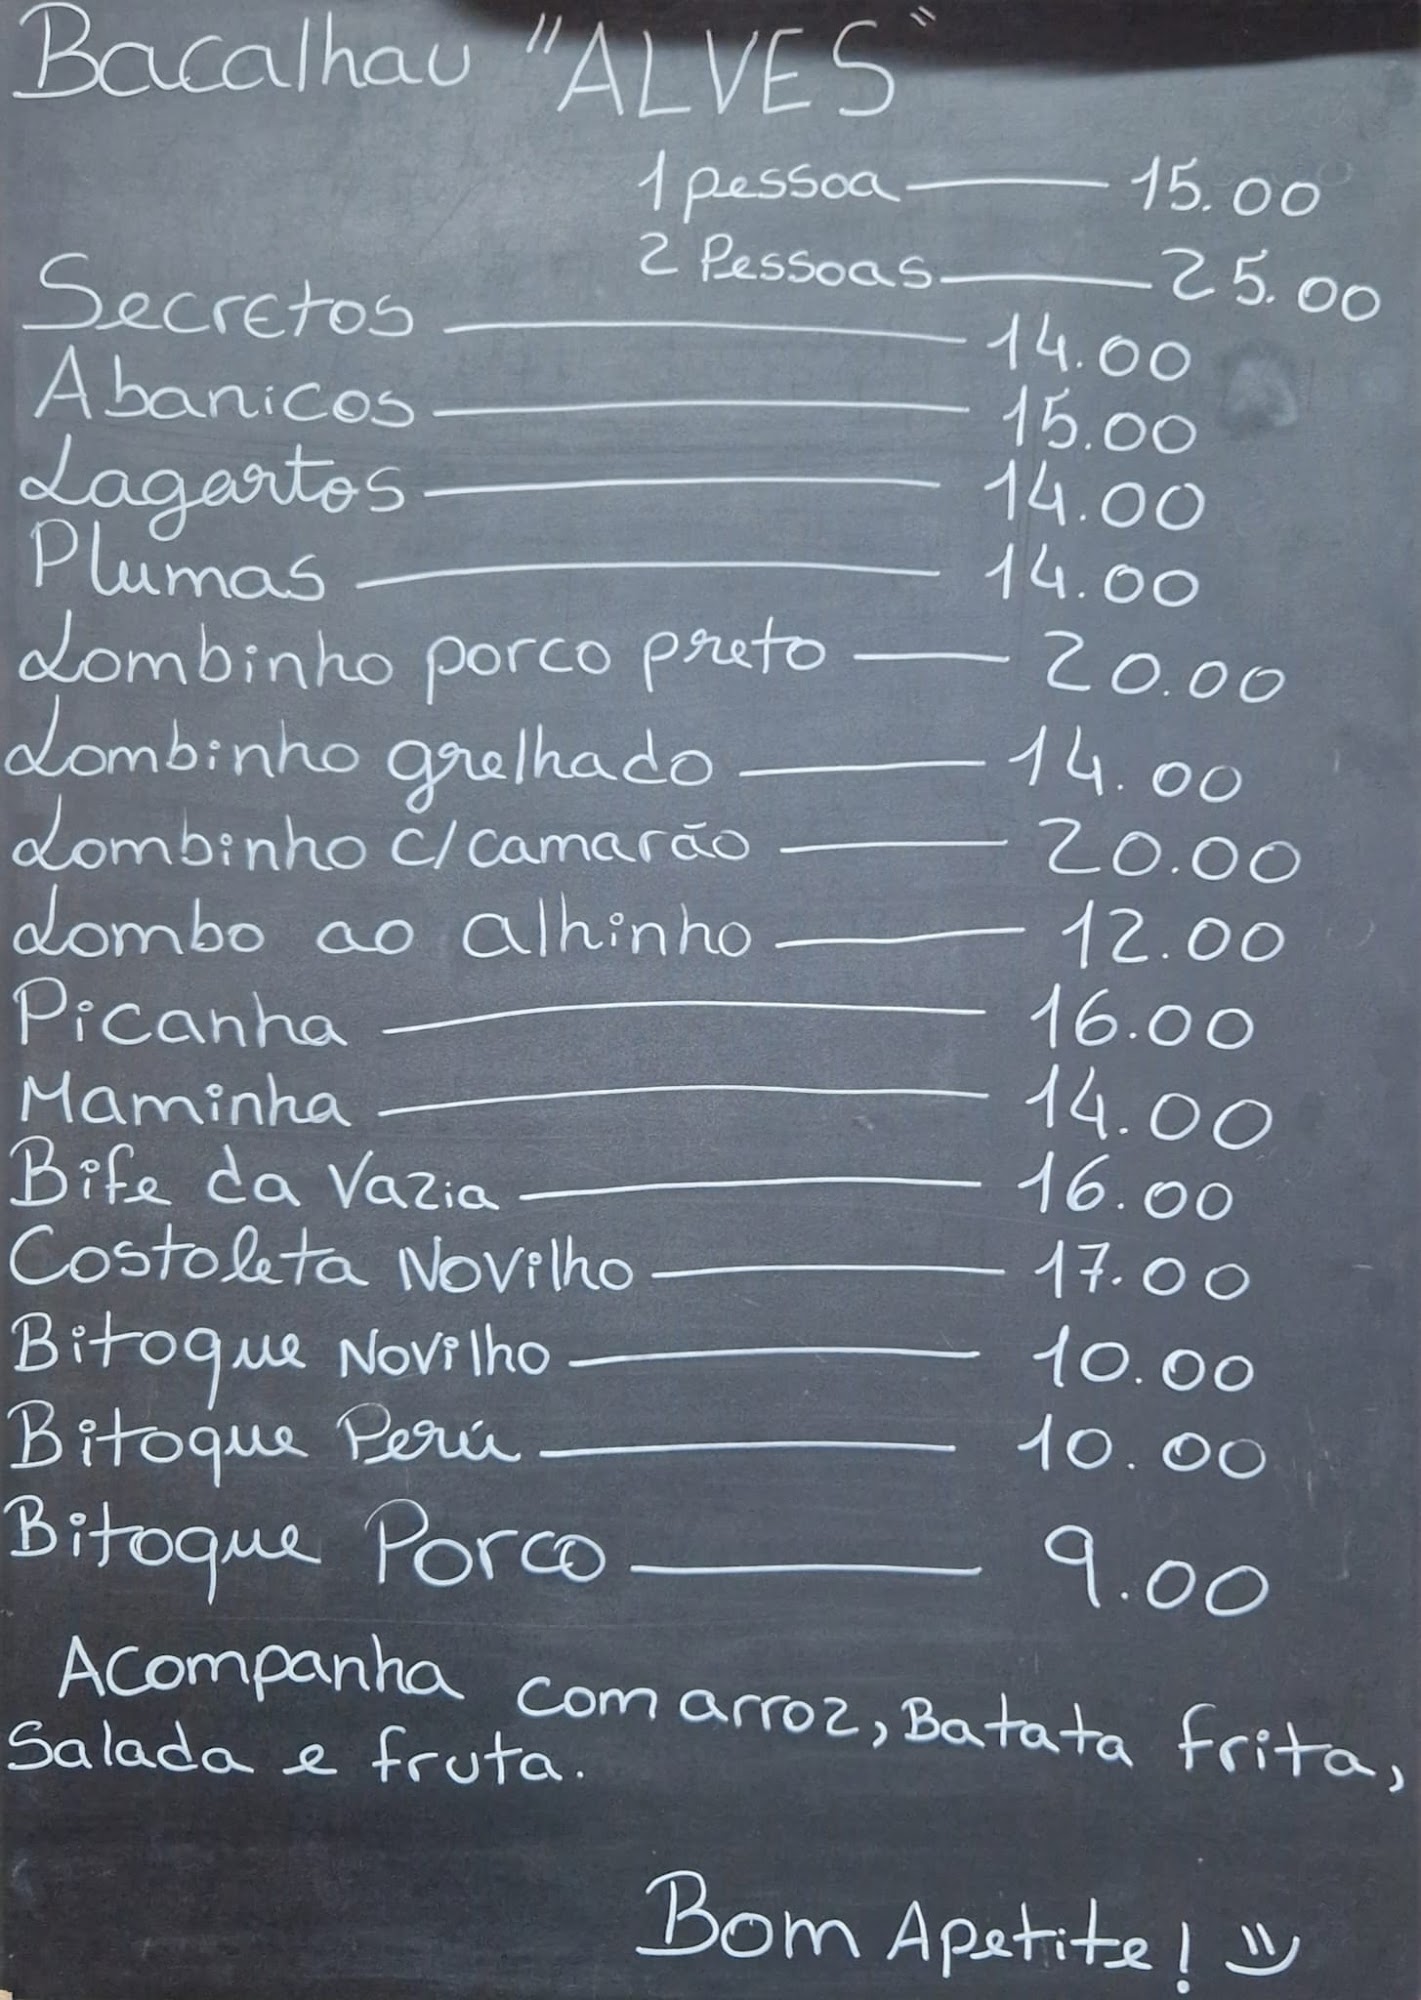 Bacalhau "ALVES"
1 pessoa — 15.00
2 Pessoas — 25.00
Secretos — 14.00
Abanicos — 15.00
Lagartos — 14.00
Plumas — 14.00
Lombinho porco preto — 20.00
Lombinho grelhado — 14.00
Lombinho c/camarão — 20.00
Lombo ao alhinho — 12.00
Picanha — 16.00
Maminha — 14.00
Bife da Vazia — 16.00
Costoleta Novilho — 17.00
Bitoque Novilho — 10.00
Bitoque Perú — 10.00
Bitoque Porco — 9.00
Acompanha com arroz, Batata frita,
Salada e fruta.
Bom Apetite! =)